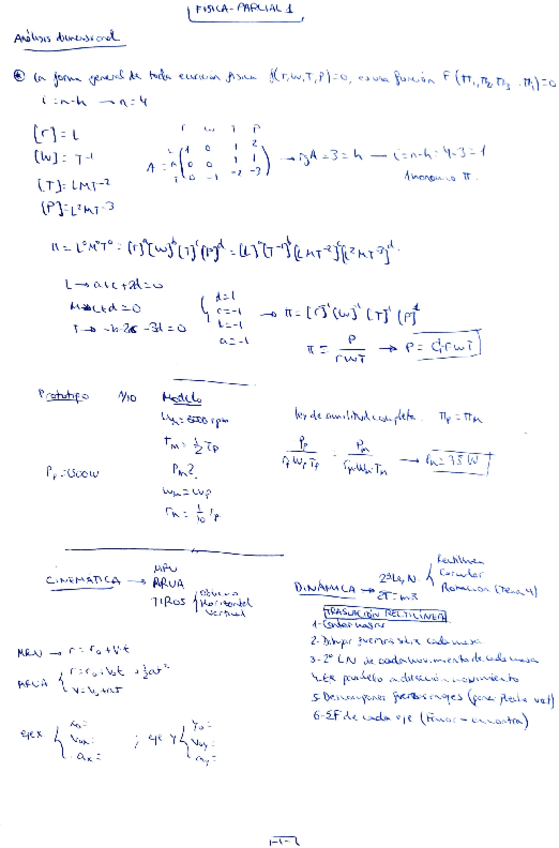 FISICA-PARCIAL 1
Análisis dimensional
La forma general de toda ecuación física f(r,w,T,P)=0, es una función F(π₁,π₂,π₃...πᵢ)=0
i=n-h → n=4
[r]=L
[W]=T⁻¹
[T]=LMT⁻²
[P]=L²MT⁻³
r w T P
A = (1 0 1 2
0 0 1 1
0 -1 -2 -3) → rgA=3=h — i=n-h=4-3=1
1 monomio π.
π=L⁰M⁰T⁰=[r]ᵃ[w]ᵇ[T]ᶜ[P]ᵈ=[L]ᵃ[T⁻¹]ᵇ[LMT⁻²]ᶜ[L²MT⁻³]ᵈ
L → a+c+2d=0
M → c+d=0
T → -b-2c-3d=0
d=1
c=-1
b=-1
a=-1
→ π=[r]⁻¹[w]⁻¹[T]⁻¹[P]¹
π = P/rwT → P=C₁rwT
Prototipo 1/10 Modelo
Tm=½Tp
Pm?
wm=wp
rm=1/10 rp
Ley de similitud completa. πp=πm
Pp/rpwpTp = Pm/rmwmTm → Pm=75W
CINEMÁTICA → MRU
MRUA
TIROS Oblicuo
Horizontal
Vertical
MRU → r=r₀+v·t
MRUA r=r₀+v₀t+½at²
v=v₀+at
eje X x₀=
v₀ₓ=
aₓ=
; eje Y y₀=
v₀y=
ay=
DINÁMICA → 2ªLey N Rectilínea
Circular
Rotación (Tema 4)
TRASLACIÓN RECTILÍNEA
1-Contar masas
2-Dibujar fuerzas sobre cada masa
3-2ª LN de cada movimiento de cada masa
4-Eje paralelo a dirección movimiento
5-Descomponer fuerzas en ejes
6-ΣF de cada eje
-1-